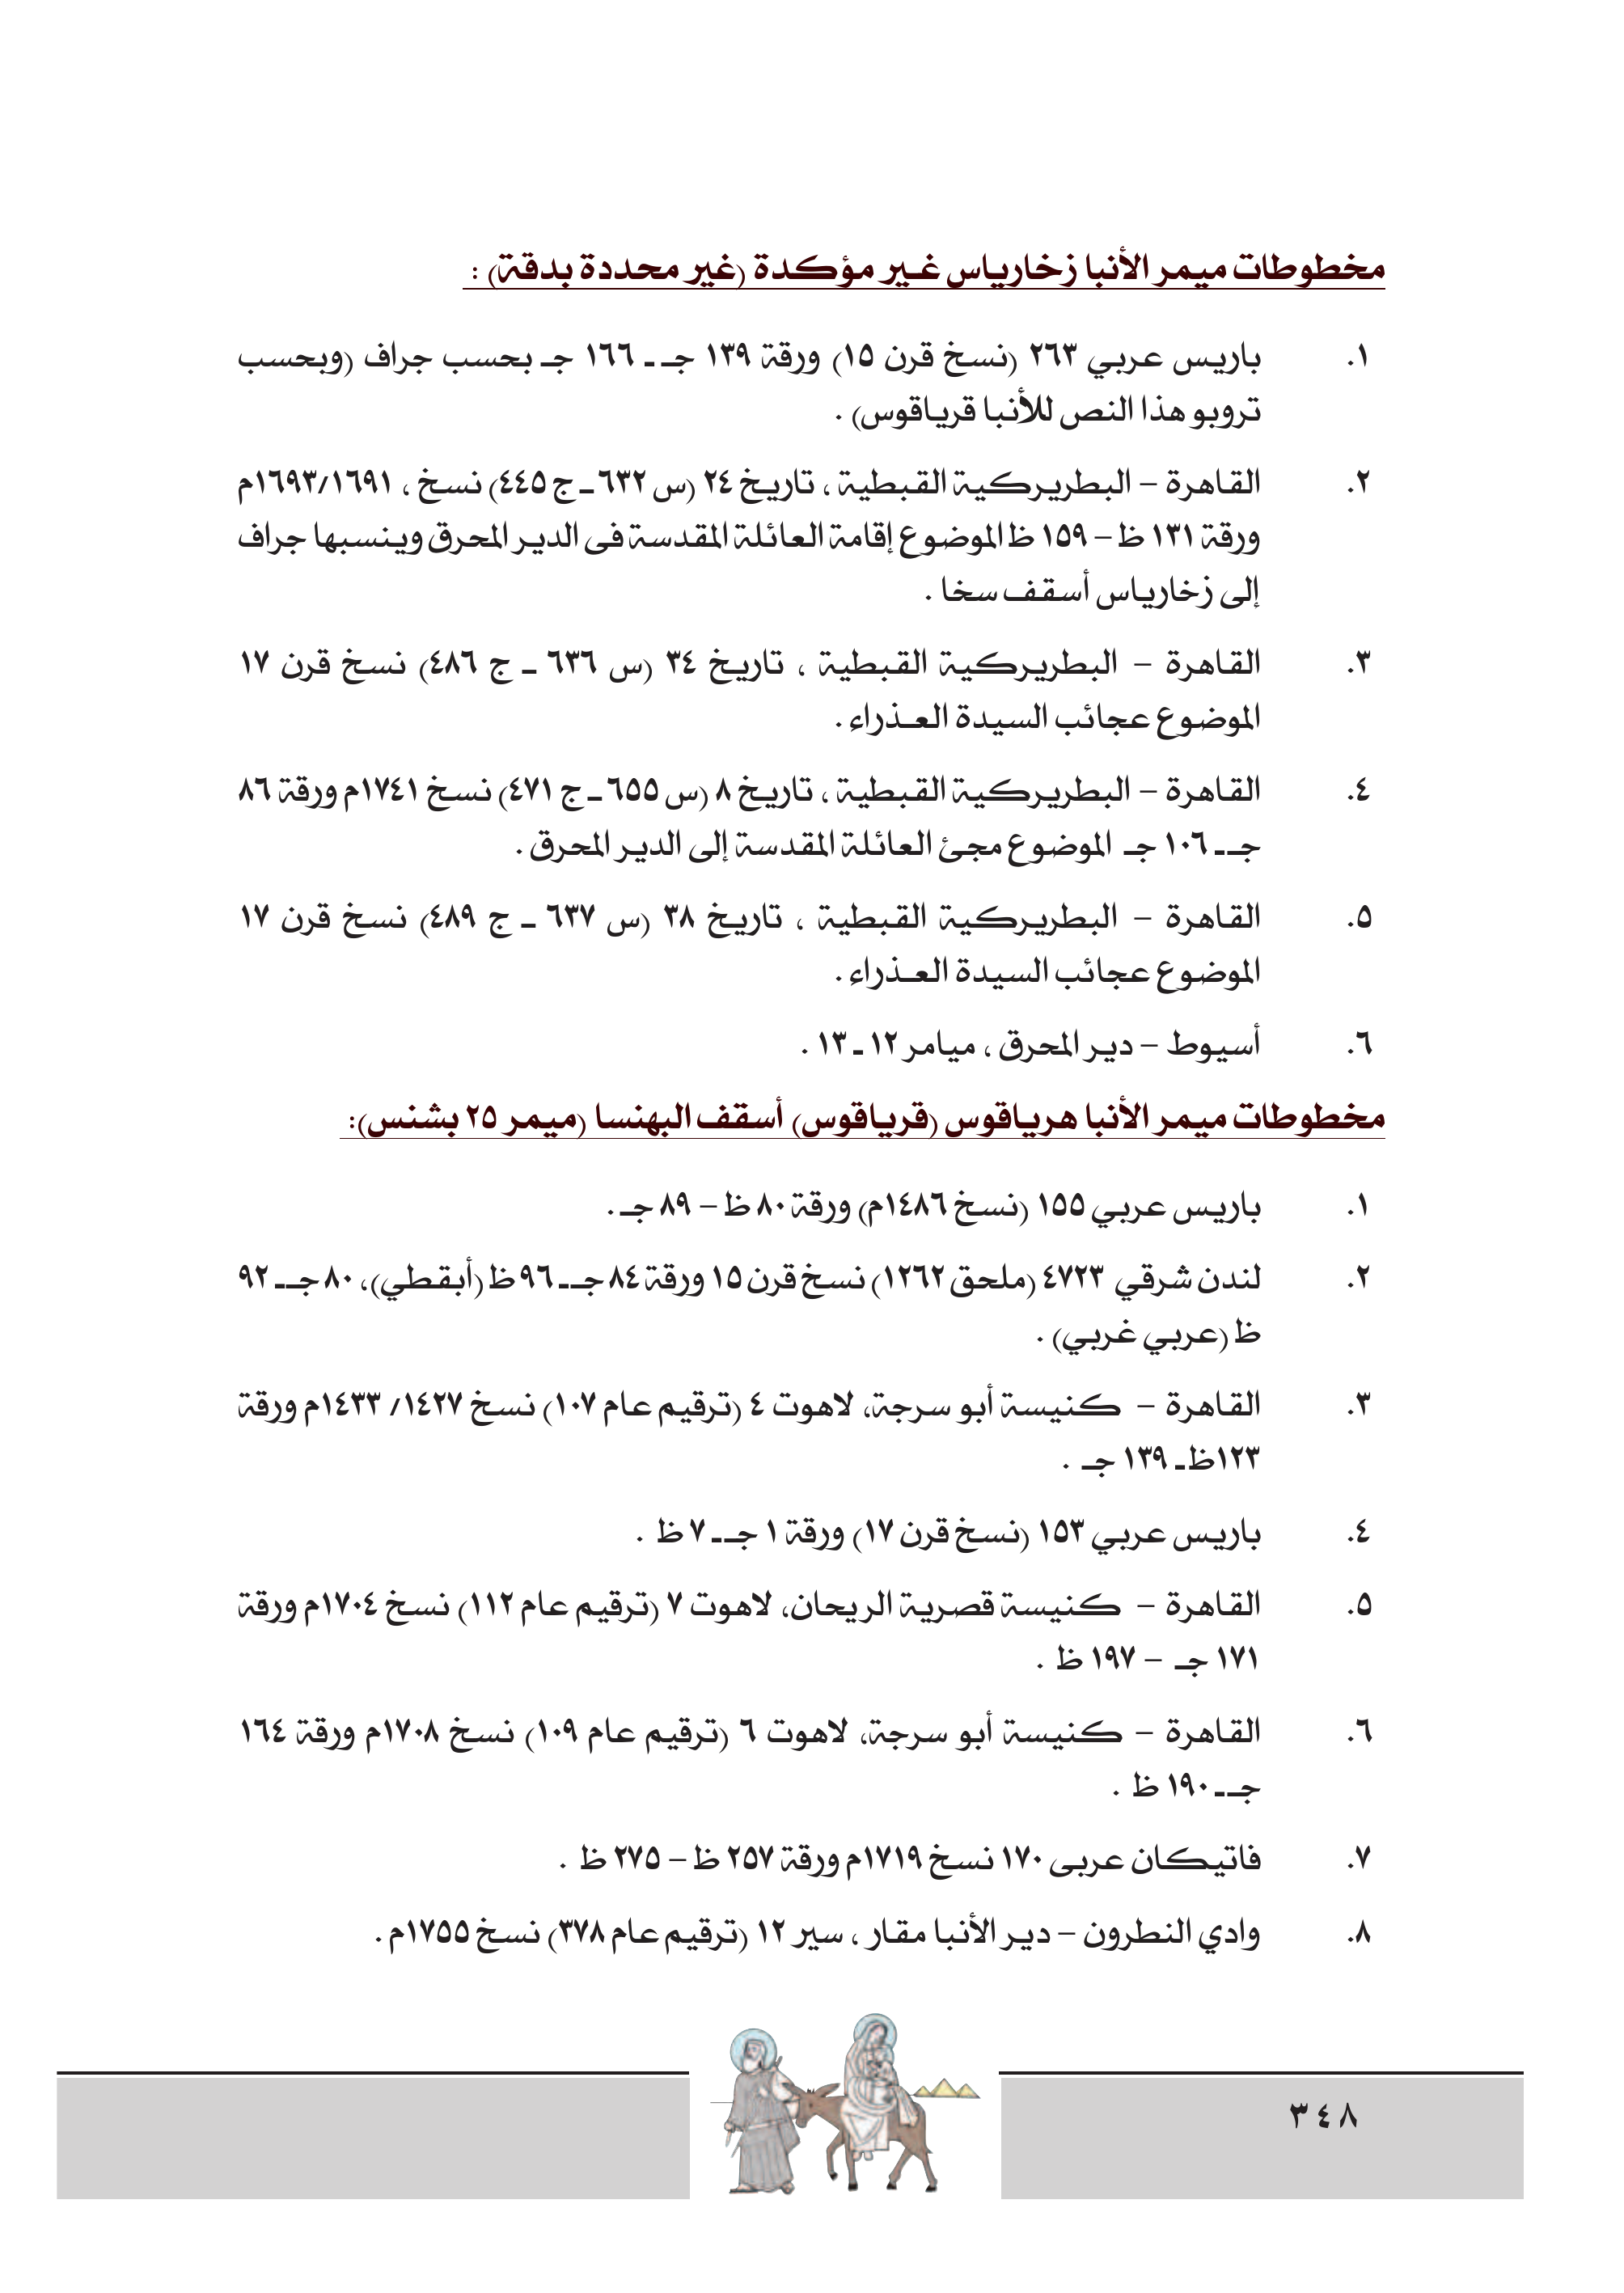 مخطوطات ميمر الأنبا زخارياس غير مؤكدة (غير محددة بدقة) :
١. باريس عربي ٢٦٣ (نسخ قرن ١٥) ورقة ١٣٩ جـ ـ ١٦٦ جـ بحسب جراف (وبحسب
تروبو هذا النص للأنبا قرياقوس) .
٢. القاهرة – البطريركية القبطية ، تاريخ ٢٤ (س ٦٣٢ ـ ج ٤٤٥) نسخ ، ١٦٩٣/١٦٩١م
ورقة ١٣١ ظ – ١٥٩ ظ الموضوع إقامة العائلة المقدسة فى الدير المحرق وينسبها جراف
إلى زخارياس أسقف سخا .
٣. القاهرة – البطريركية القبطية ، تاريخ ٣٤ (س ٦٣٦ ـ ج ٤٨٦) نسخ قرن ١٧
الموضوع عجائب السيدة العذراء .
٤. القاهرة – البطريركية القبطية ، تاريخ ٨ (س ٦٥٥ ـ ج ٤٧١) نسخ ١٧٤١م ورقة ٨٦
جـ ـ ١٠٦ جـ الموضوع مجئ العائلة المقدسة إلى الدير المحرق .
٥. القاهرة – البطريركية القبطية ، تاريخ ٣٨ (س ٦٣٧ ـ ج ٤٨٩) نسخ قرن ١٧
الموضوع عجائب السيدة العذراء .
٦. أسيوط – دير المحرق ، ميامر ١٢ ـ ١٣ .
مخطوطات ميمر الأنبا هرياقوس (قرياقوس) أسقف البهنسا (ميمر ٢٥ بشنس):
١. باريس عربي ١٥٥ (نسخ ١٤٨٦م) ورقة ٨٠ ظ – ٨٩ جـ .
٢. لندن شرقي ٤٧٢٣ (ملحق ١٢٦٢) نسخ قرن ١٥ ورقة ٨٤ جـ ـ ٩٦ ظ (أبقطي)، ٨٠ جـ ـ ٩٢
ظ (عربي غربي) .
٣. القاهرة – كنيسة أبو سرجة، لاهوت ٤ (ترقيم عام ١٠٧) نسخ ١٤٢٧/ ١٤٣٣م ورقة
١٢٣ظ ـ ١٣٩ جـ .
٤. باريس عربي ١٥٣ (نسخ قرن ١٧) ورقة ١ جـ ـ ٧ ظ .
٥. القاهرة – كنيسة قصرية الريحان، لاهوت ٧ (ترقيم عام ١١٢) نسخ ١٧٠٤م ورقة
١٧١ جـ – ١٩٧ ظ .
٦. القاهرة – كنيسة أبو سرجة، لاهوت ٦ (ترقيم عام ١٠٩) نسخ ١٧٠٨م ورقة ١٦٤
جـ ـ ١٩٠ ظ .
٧. فاتيكان عربى ١٧٠ نسخ ١٧١٩م ورقة ٢٥٧ ظ – ٢٧٥ ظ .
٨. وادي النطرون – دير الأنبا مقار ، سير ١٢ (ترقيم عام ٣٧٨) نسخ ١٧٥٥م .
٣٤٨